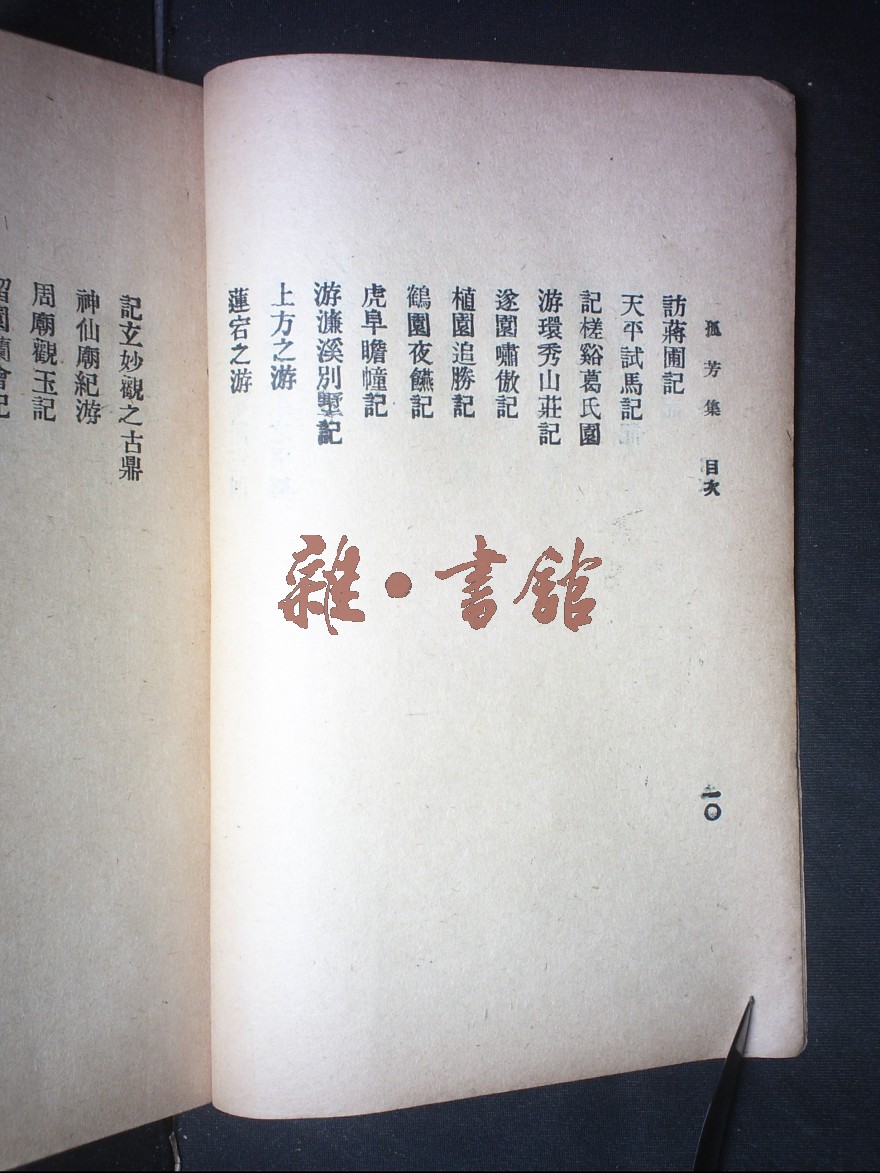 孤芳集 目次
一〇
訪蔣圃記
天平試馬記
記槎谿葛氏園
游環秀山莊記
遂園嘯傲記
植園追勝記
鶴園夜讌記
虎阜瞻幢記
游濂溪別墅記
上方之游
蓮宕之游
記玄妙觀之古鼎
神仙廟紀游
周廟觀玉記
留園蘭會記
雜·書館